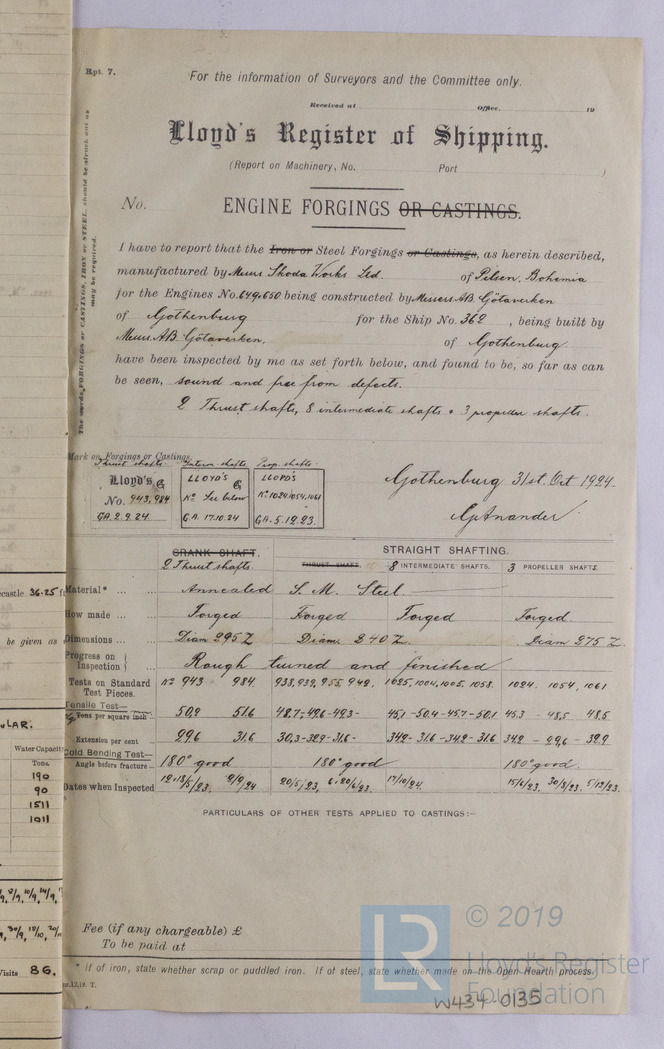 Rpt. 7.
For the information of Surveyors and the Committee only.
Received at Office. 19
Lloyd's Register of Shipping.
(Report on Machinery, No. Port )
No. ENGINE FORGINGS OR CASTINGS.
The words FORGINGS or CASTINGS, IRON or STEEL, should be struck out as may be required.
I have to report that the Iron or Steel Forgings or Castings, as herein described,
manufactured by Messrs Skoda Works Ltd. of Pilsen, Bohemia
for the Engines No. 649 & 650 being constructed by Messrs AB. Götaverken
of Gothenburg for the Ship No. 362, being built by
Messrs AB. Götaverken, of Gothenburg
have been inspected by me as set forth below, and found to be, so far as can
be seen, sound and free from defects.
2 Thrust shafts, 8 intermediate shafts & 3 propeller shafts.
Mark on Forgings or Castings.
Thrust shafts. Interm. shafts. Prop. shafts.
Lloyd's G LLOYD'S G LLOYD'S
No. 943, 984 No See below No 1024.1054.1061
GA. 2.9.24 GA. 17.10.24 GA. 5.12.23.
Gothenburg 31st. Oct 1924.
CRANK SHAFT. STRAIGHT SHAFTING.
2 Thrust shafts. THRUST SHAFT. 8 INTERMEDIATE SHAFTS. 3 PROPELLER SHAFTS.
Material* Annealed S. M. Steel
How made Forged Forged Forged Forged.
Dimensions Diam 295 Diam 240 Diam 275
Progress on Inspection Rough turned and finished
Tests on Standard Test Pieces. No 943 984 938, 939, 955, 942. 1025, 1004, 1005, 1058. 1024. 1054, 1061
Tensile Test—
Tons per square inch 50.9 51.6 48.7-49.6-49.3- 45.1-50.4-45.7-50.1 45.3 - 48.5 - 48.5
Extension per cent 29.6 31.6 30.3-32.9-31.6- 34.2-31.6-34.2-31.6 34.2 - 29.6 - 32.9
Cold Bending Test—
Angle before fracture 180° good 180° good 180° good.
Dates when Inspected 2/9/24 20/5/23, 17/10/24. 15/6/23. 30/8/23. 5/12/23.
PARTICULARS OF OTHER TESTS APPLIED TO CASTINGS:—
Fee (if any chargeable) £
To be paid at
* If of iron, state whether scrap or puddled iron. If of steel, state whether made on the Open Hearth process
W434-0135
LR © 2019
Lloyd's Register
Foundation
castle 36.25
be given as
ULAR.
Water Capacity
Tons.
190
90
1511
1011
Visits 86.